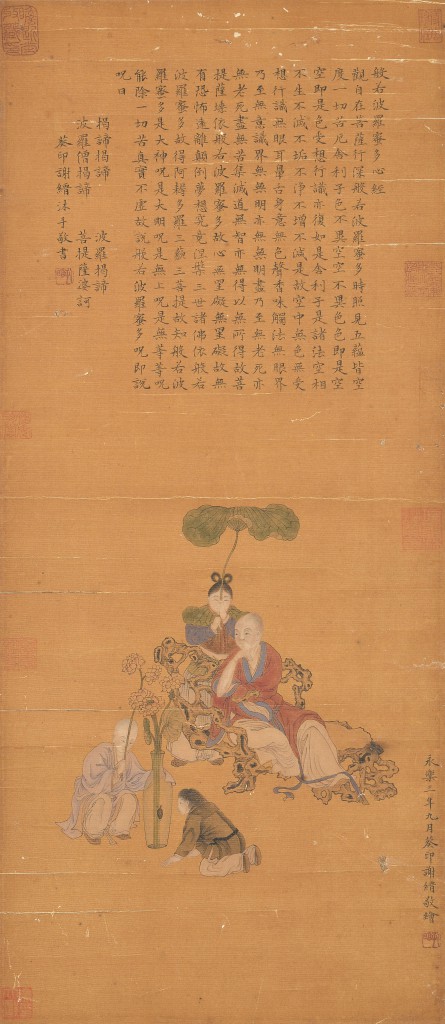 般若波羅蜜多心經
觀自在菩薩行深般若波羅蜜多時照見五蘊皆空
度一切苦厄舍利子色不異空空不異色色即是空
空即是色受想行識亦復如是舍利子是諸法空相
不生不滅不垢不淨不增不減是故空中無色無受
想行識無眼耳鼻舌身意無色聲香味觸法無眼界
乃至無意識界無無明亦無無明盡乃至無老死亦
無老死盡無苦集滅道無智亦無得以無所得故菩
提薩埵依般若波羅蜜多故心無罣礙無罣礙故無
有恐怖遠離顛倒夢想究竟涅槃三世諸佛依般若
波羅蜜多故得阿耨多羅三藐三菩提故知般若波
羅蜜多是大神呪是大明呪是無上呪是無等等呪
能除一切苦真實不虛故說般若波羅蜜多呪即說
呪曰
揭諦揭諦 波羅揭諦
波羅僧揭諦 菩提薩婆訶
葵印謝縉沐手敬書
永樂三年九月葵印謝縉敬繪